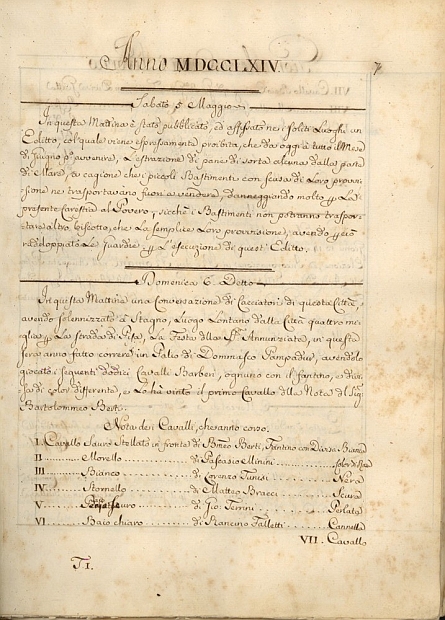 Anno MDCCLXIV.
7
Sabato 5 Maggio
In questa Mattina è stato pubblicato, ed affissato nei soliti Luoghi un
Editto, col quale viene espressamente proibita, che da oggi a tutto il Mese
di Giugno pº avvenire, L'estrazione di pane di sorta alcuna dalla parte
di Mare, a cagione che i piccoli Bastimenti con scusa di Loro provvi-
sione ne trasportavano fuori a vendere, danneggiando molto la
presente carestia al Povero, sicchè i Bastimenti non potranno traspor-
tare altro biscotto, che La semplice Loro provvisione, avendo p ciò
raddoppiato Le guardie p L'esecuzione di quest'Editto.
Domenica 6. Detto
In questa Mattina una Conversazione di Cacciatori di questa Città
avendo solennizzato a Stagno, Luogo Lontano dalla Città quattro mi-
glia p La strada di Pisa, La Festa della SS. Annunziata, in questa
sera anno fatto correre un Palio di Dommasco Pampadur, avendolo
giocato i seguenti dodici Cavalli Barberi, ognuno con il fantino, e di
di color differente, e Lo hà vinto il primo Cavallo della Nota del Sig
Bartolommeo Berti.
Nota dei Cavalli, che anno corso.
I Cavallo Sauro Stellato in fronte di Bmeo Berti, Fantino con Divisa Bianca
II Morello di Pascasio Minini color di Rosa
III Bianco di Lorenzo Tunesi Nera
IV Stornello di Matteo Bracci Scura
V Sauro di Gio. Terrini Perlata
VI Baio chiaro di Rancino Falletti Cannella
VII. Cavallo
T. I.